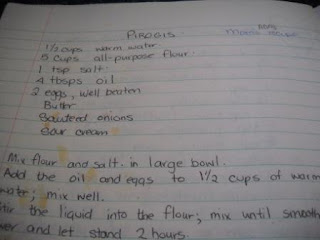 PIROGIS
1½ cups warm water
5 cups all-purpose flour
1 tsp salt
4 tbsps oil
2 eggs, well beaten
Butter
Sauteed onions
Sour cream
Mix flour and salt in large bowl.
Add the oil and eggs to 1½ cups of warm
water; mix well.
Stir the liquid into the flour; mix until smooth
and let stand 2 hours.